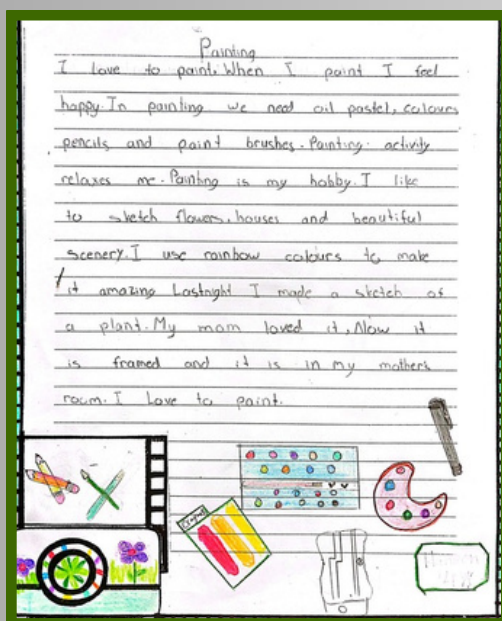 Painting
I love to paint. When I paint I feel
happy. In painting we need oil pastel, colours
pencils and paint brushes. Painting activity
relaxes me. Painting is my hobby. I like
to sketch flowers, houses and beautiful
scenery. I use rainbow colours to make
it amazing Lastnight I made a sketch of
a plant. My mom loved it, Now it
is framed and it is in my mother's
room. I Love to paint.